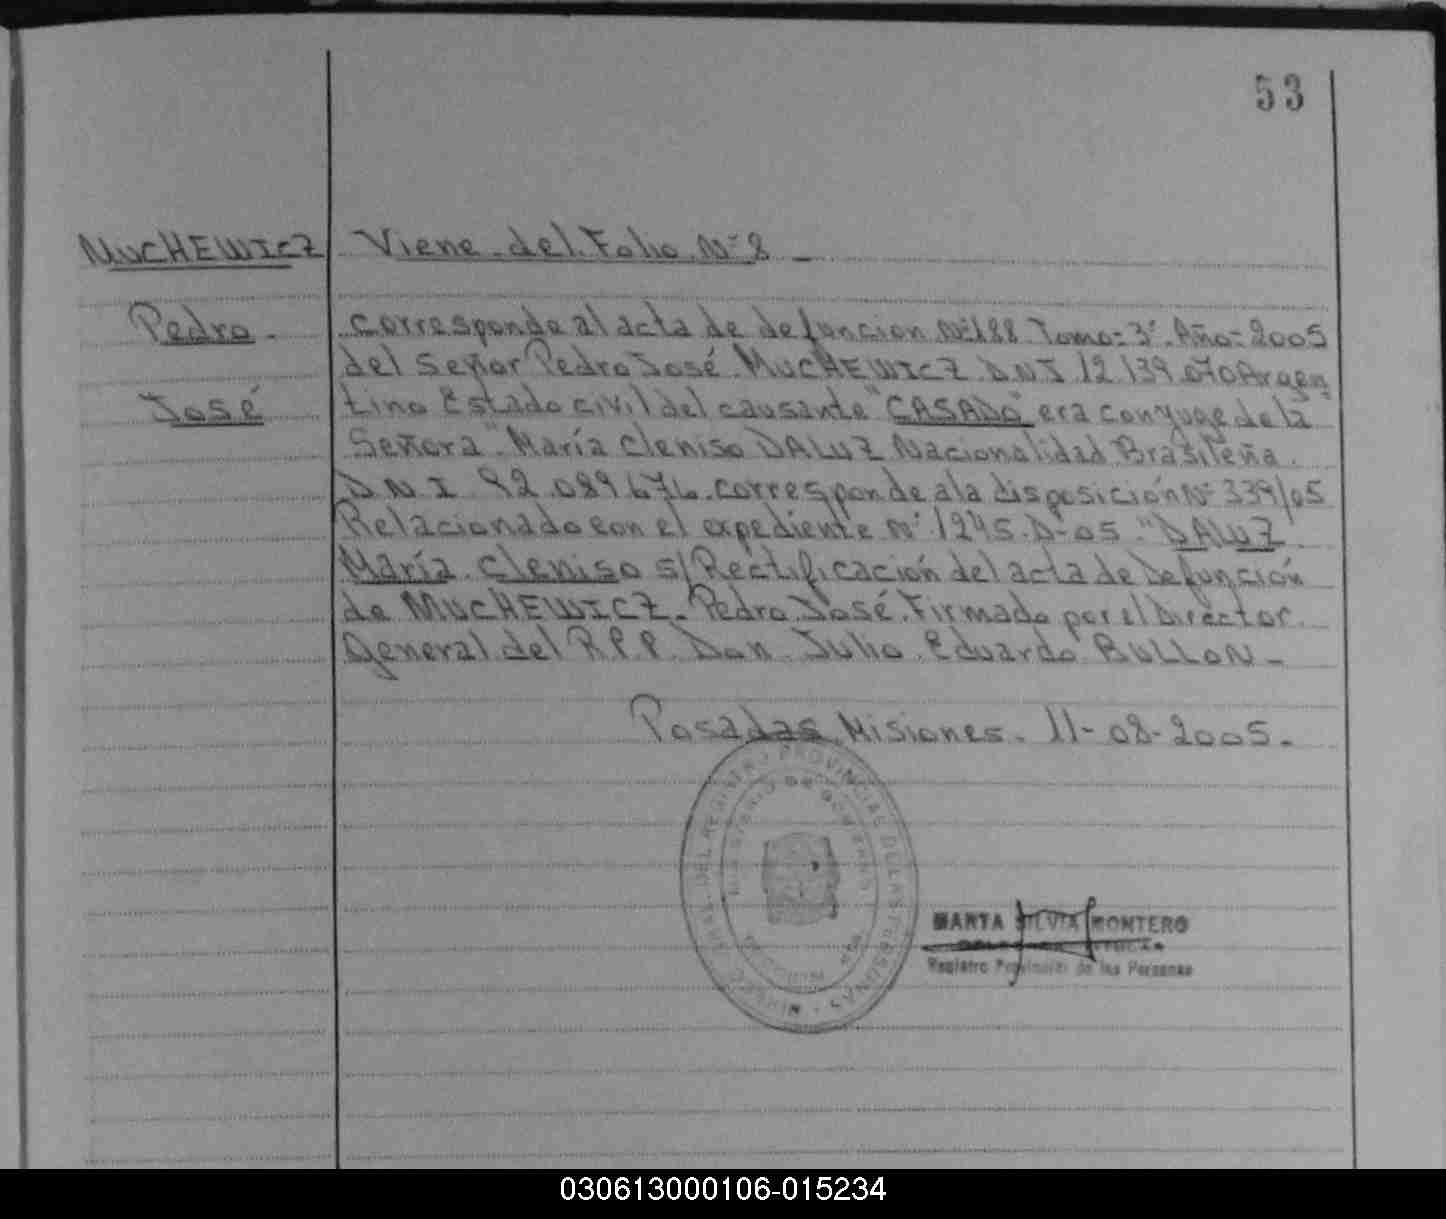 53
MUCHEWICZ Viene del Folio Nº 8
Pedro corresponde al acta de defuncion Nº 188 Tomo = 3º Año = 2005
del Señor Pedro José MUCHEWICZ D.N.I 12.139.070 Argen
José tino Estado civil del causante "CASADO" era conyuge de la
Señora". María Cleniso DALUZ Nacionalidad Brasileña.
D.N.I 92.089.676. corresponde a la disposición Nº 339/05
Relacionado con el expediente Nº 1245-D-05. "DALUZ
María Cleniso s/Rectificación del acta de Defunción
de MUCHEWICZ. Pedro José. Firmado por el Director.
General del R.P.P. Don Julio Eduardo BULLON -
Posadas Misiones. 11-08-2005.
REGISTRO PROVINCIAL DE LAS PERSONAS
MINISTERIO DE GOBIERNO
MARTA SILVIA MONTERO
Registro Provincial de las Personas
030613000106-015234